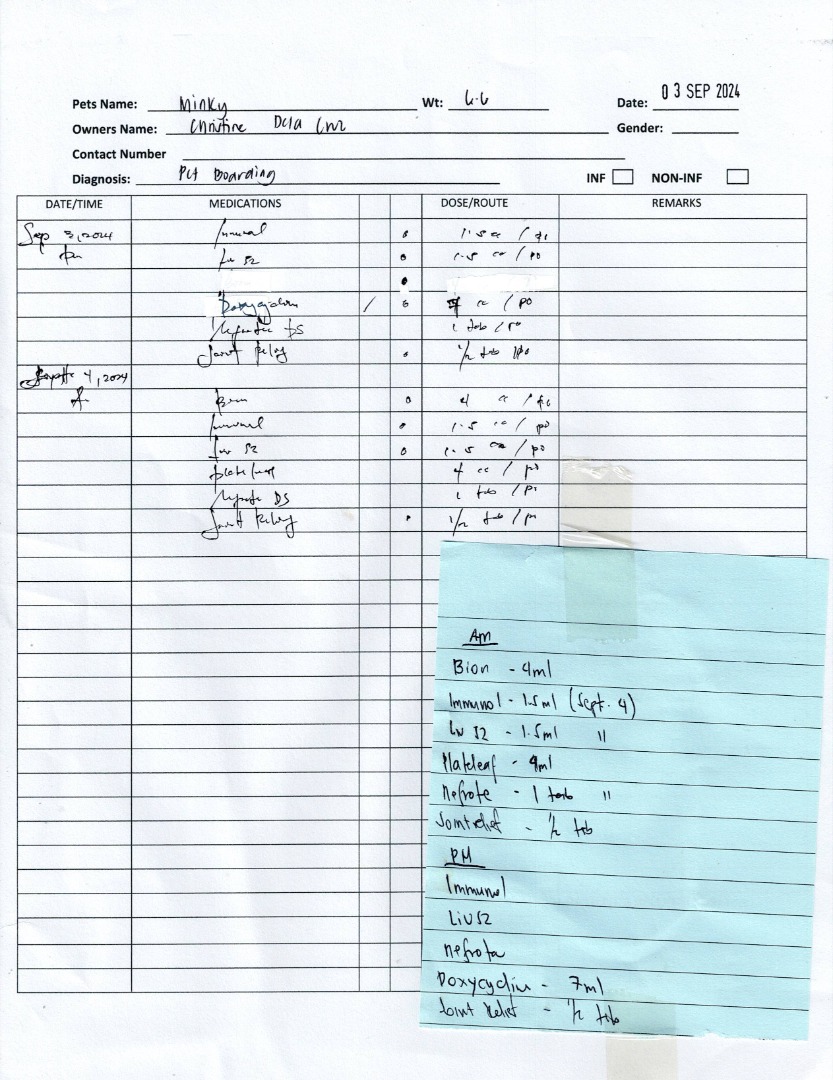 03 SEP 2024
Pets Name: Minky Wt: 6.6 Date:
Owners Name: Christine Dela Cruz Gender:
Contact Number
Diagnosis: Pet Boarding INF NON-INF
DATE/TIME MEDICATIONS DOSE/ROUTE REMARKS
Sep 3, 2024 Immunol 1.5 cc / po
pm Liv 52 1.5 cc / po
Doxycyclin / 7 cc / po
Nefrotec DS 1 tab / po
Joint Relief 1/2 tab / po
4, 2024
Bion 4 cc / po
Immunol 1.5 cc / po
Liv 52 1.5 cc / po
Plateleaf 4 cc / po
Nefrotec DS 1 tab / po
Joint Relief 1/2 tab / po
AM
Bion - 4ml
Immunol - 1.5ml (Sept. 4)
Liv 52 - 1.5ml "
Plateleaf - 4ml
Nefrote - 1 tab "
Joint relief - 1/2 tab
PM
Immunol
Liv52
Nefrote
Doxycyclin - 7ml
Joint Relief - 1/2 tab